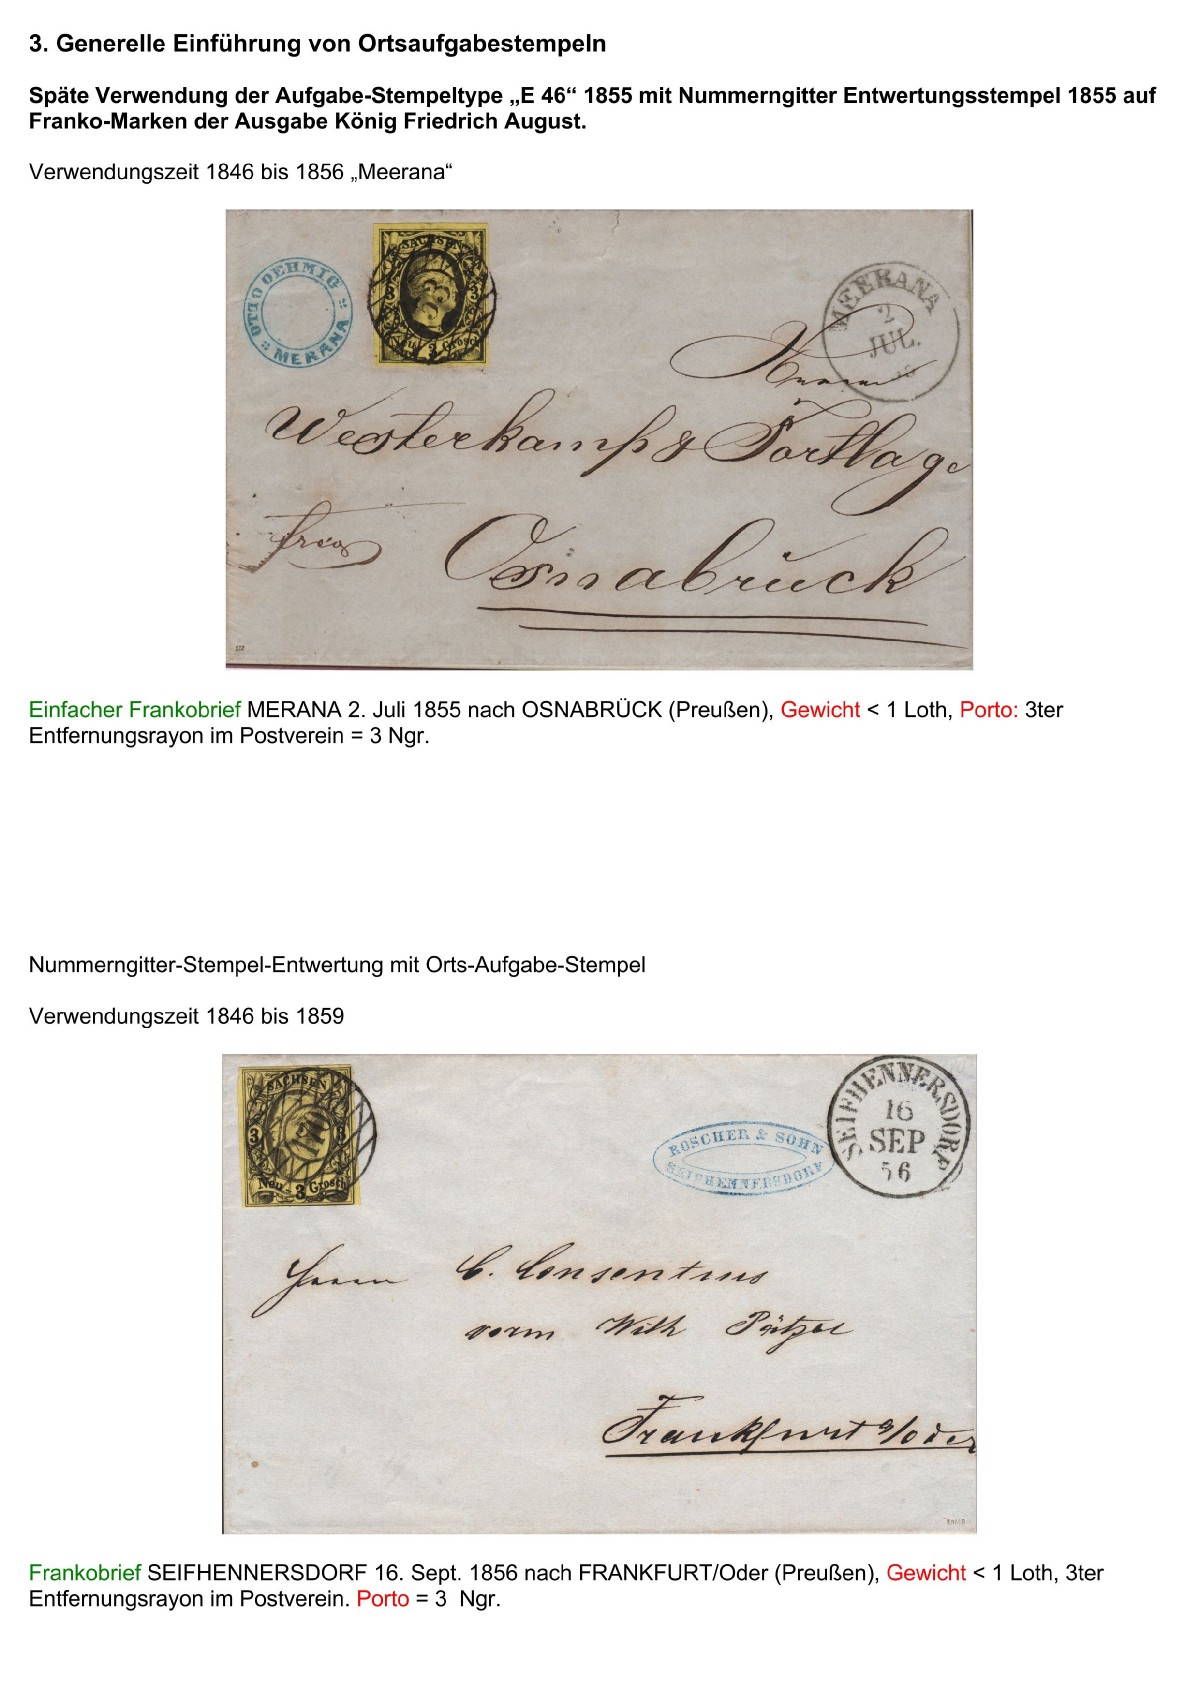 3. Generelle Einführung von Ortsaufgabestempeln
Späte Verwendung der Aufgabe-Stempeltype „E 46“ 1855 mit Nummerngitter Entwertungsstempel 1855 auf
Franko-Marken der Ausgabe König Friedrich August.
Verwendungszeit 1846 bis 1856 „Meerana“
OTTO OEHMIG
MERANA
SACHSEN
3 3
Neu 3 Grosch
MEERANA
2
JUL.
Herrn
Westerkamp & Fortlage
Osnabrück
Einfacher Frankobrief MERANA 2. Juli 1855 nach OSNABRÜCK (Preußen), Gewicht < 1 Loth, Porto: 3ter
Entfernungsrayon im Postverein = 3 Ngr.
Nummerngitter-Stempel-Entwertung mit Orts-Aufgabe-Stempel
Verwendungszeit 1846 bis 1859
SACHSEN
3 3
Neu 3 Grosch
ROSCHER & SOHN
SEIFHENNERSDORF
SEIFHENNERSDORF
16
SEP
56
Herrn C. Consentius
vorm Wilh Pätzel
Frankfurt a/Oder
Frankobrief SEIFHENNERSDORF 16. Sept. 1856 nach FRANKFURT/Oder (Preußen), Gewicht < 1 Loth, 3ter
Entfernungsrayon im Postverein. Porto = 3 Ngr.